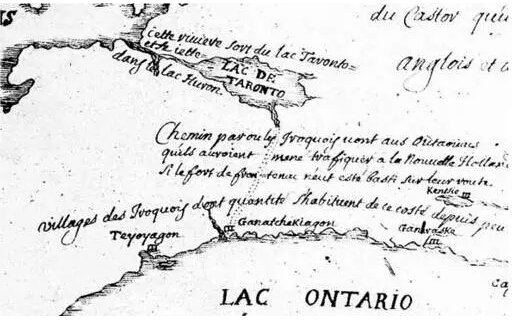 is
du Castor qu'il
Cette riviere sort du lac Taronto
et se iette
dans le lac Huron.
LAC DE
TARONTO
anglois et
Chemin par ou les Iroquois vont aux Outaouacs
quils auroient mené trafiquer a la Nouvelle Hollan
si le fort de frontenac neut esté basti sur leur route.
Kentsio
villages des Iroquois dont quantité s'habituent de ce costé depuis peu
Teyoyagon
Ganatchekiagon
Ganaraske
LAC ONTARIO